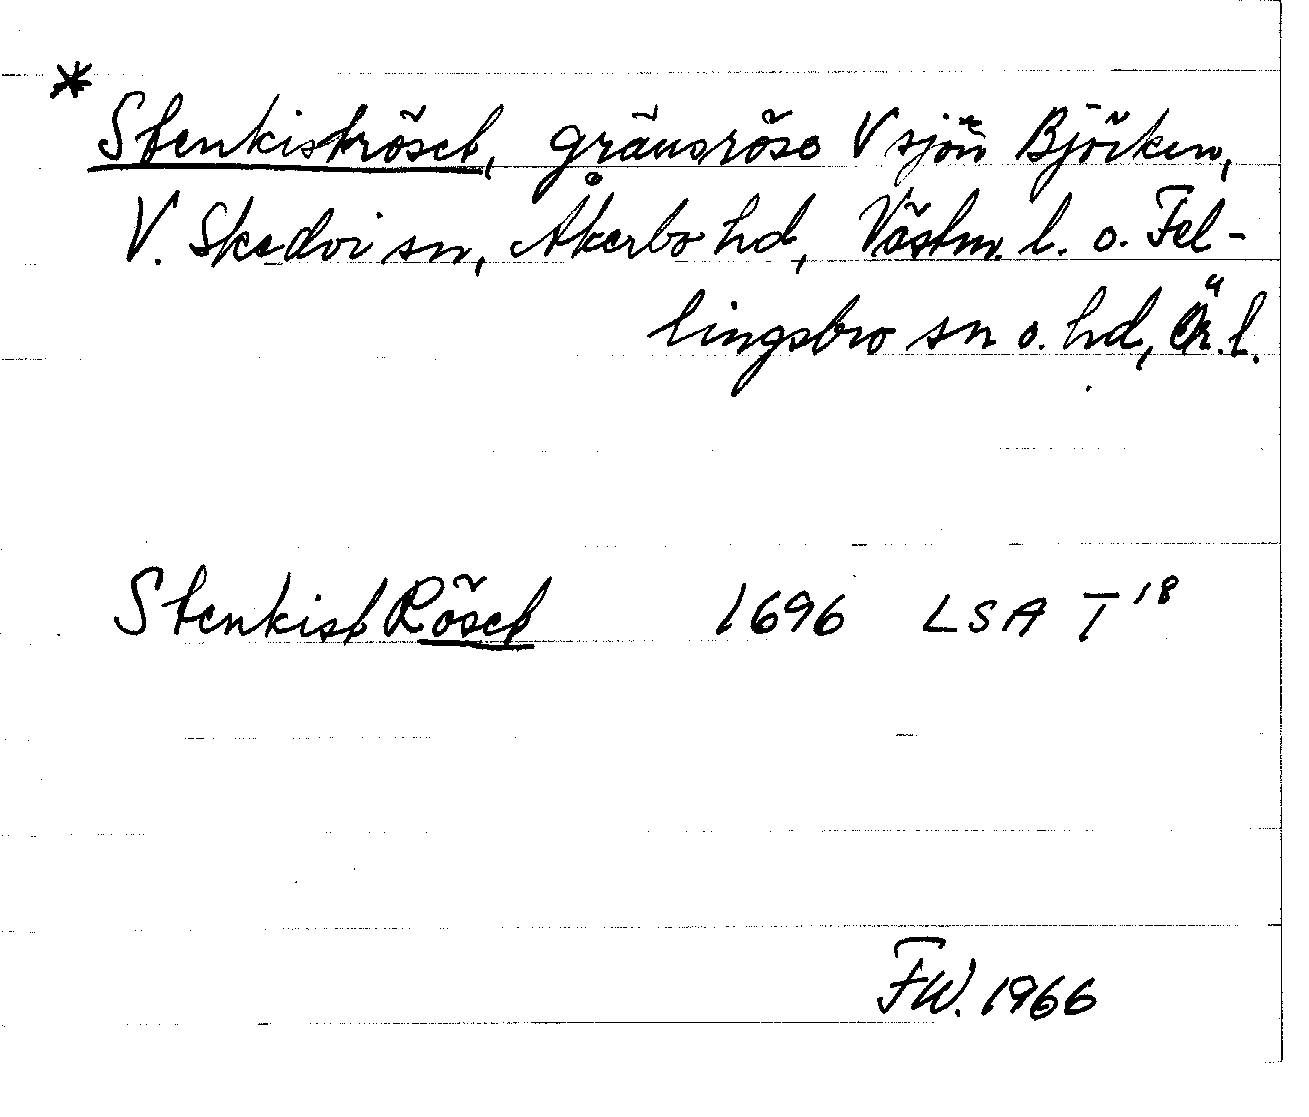 * Stenkiströset, gränsröse V sjön Björken,
V. Skedvi sn, Åkerbo hd, Västm. l. o. Fel-
lingsbro sn o. hd, Ör. l.
Stenkist Röset 1696 LSA T 18
FW. 1966